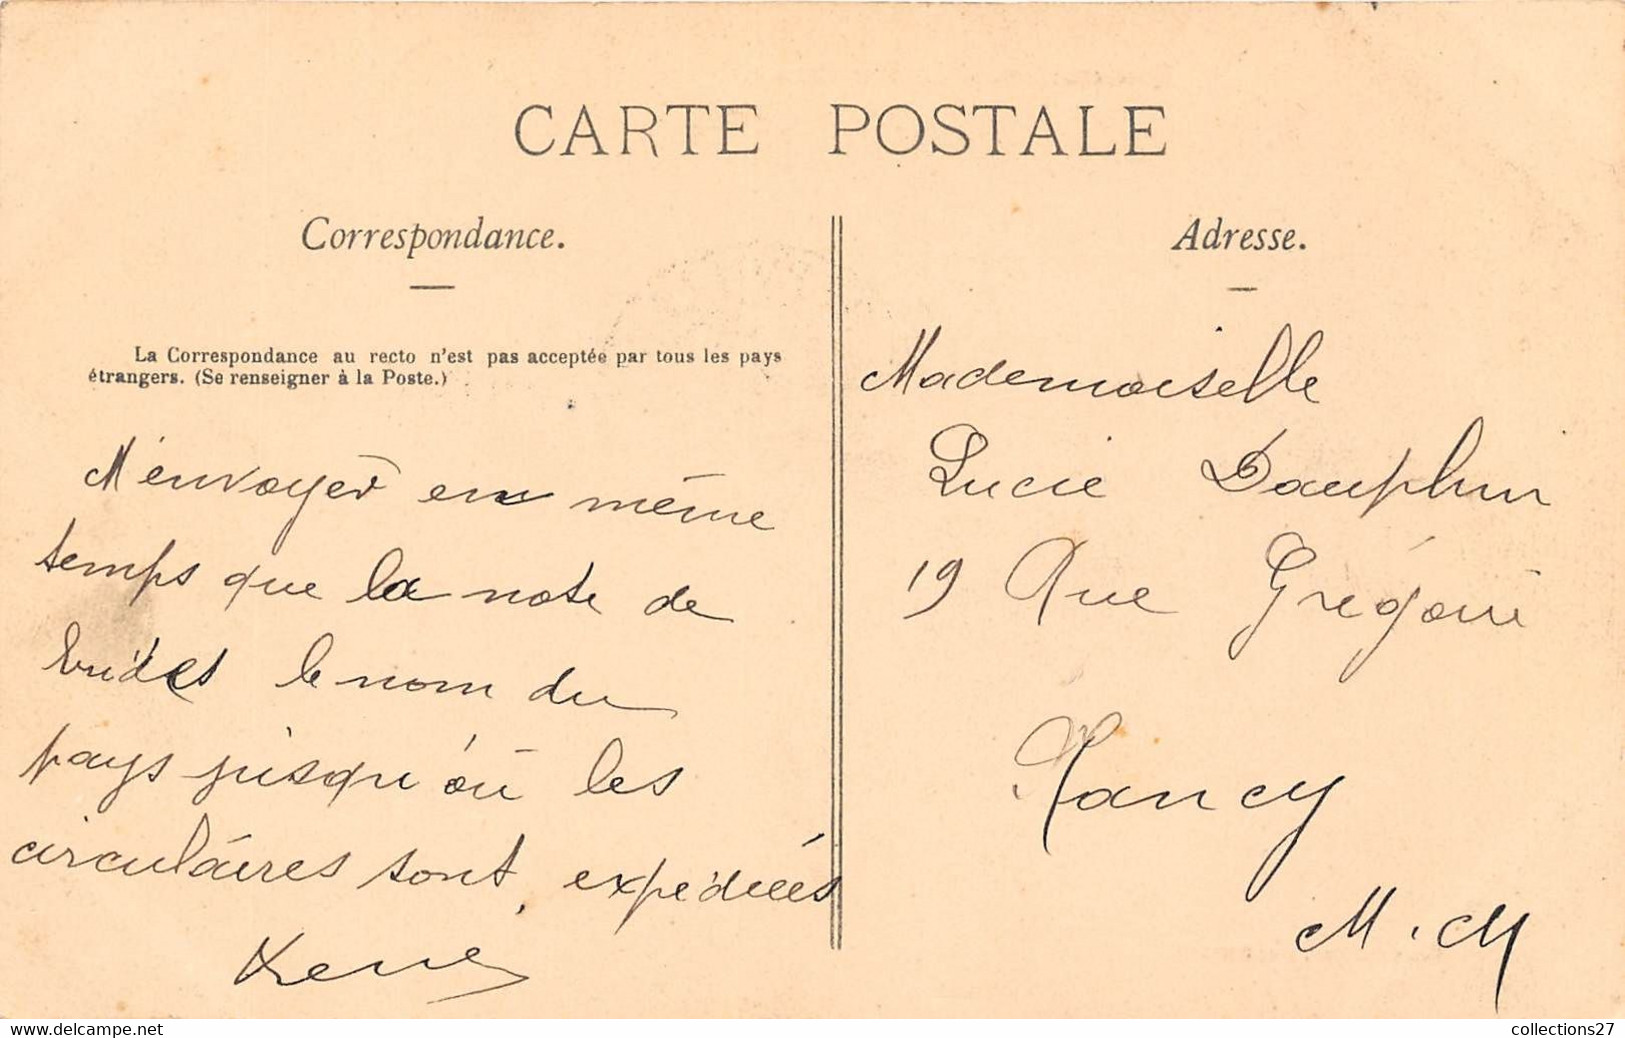 CARTE POSTALE
Correspondance.
La Correspondance au recto n'est pas acceptée par tous les pays
étrangers. (Se renseigner à la Poste.)
M'envoyer en même
temps que la note de
brides le nom du
pays jusqu'où les
circulaires sont expédiées
René
Adresse.
Mademoiselle
Lucie Dauphin
19 Rue Grégoire
Nancy
M. M
collections27